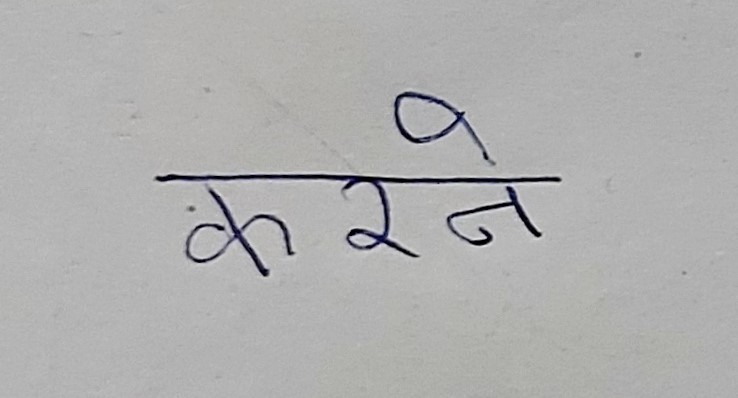 करने